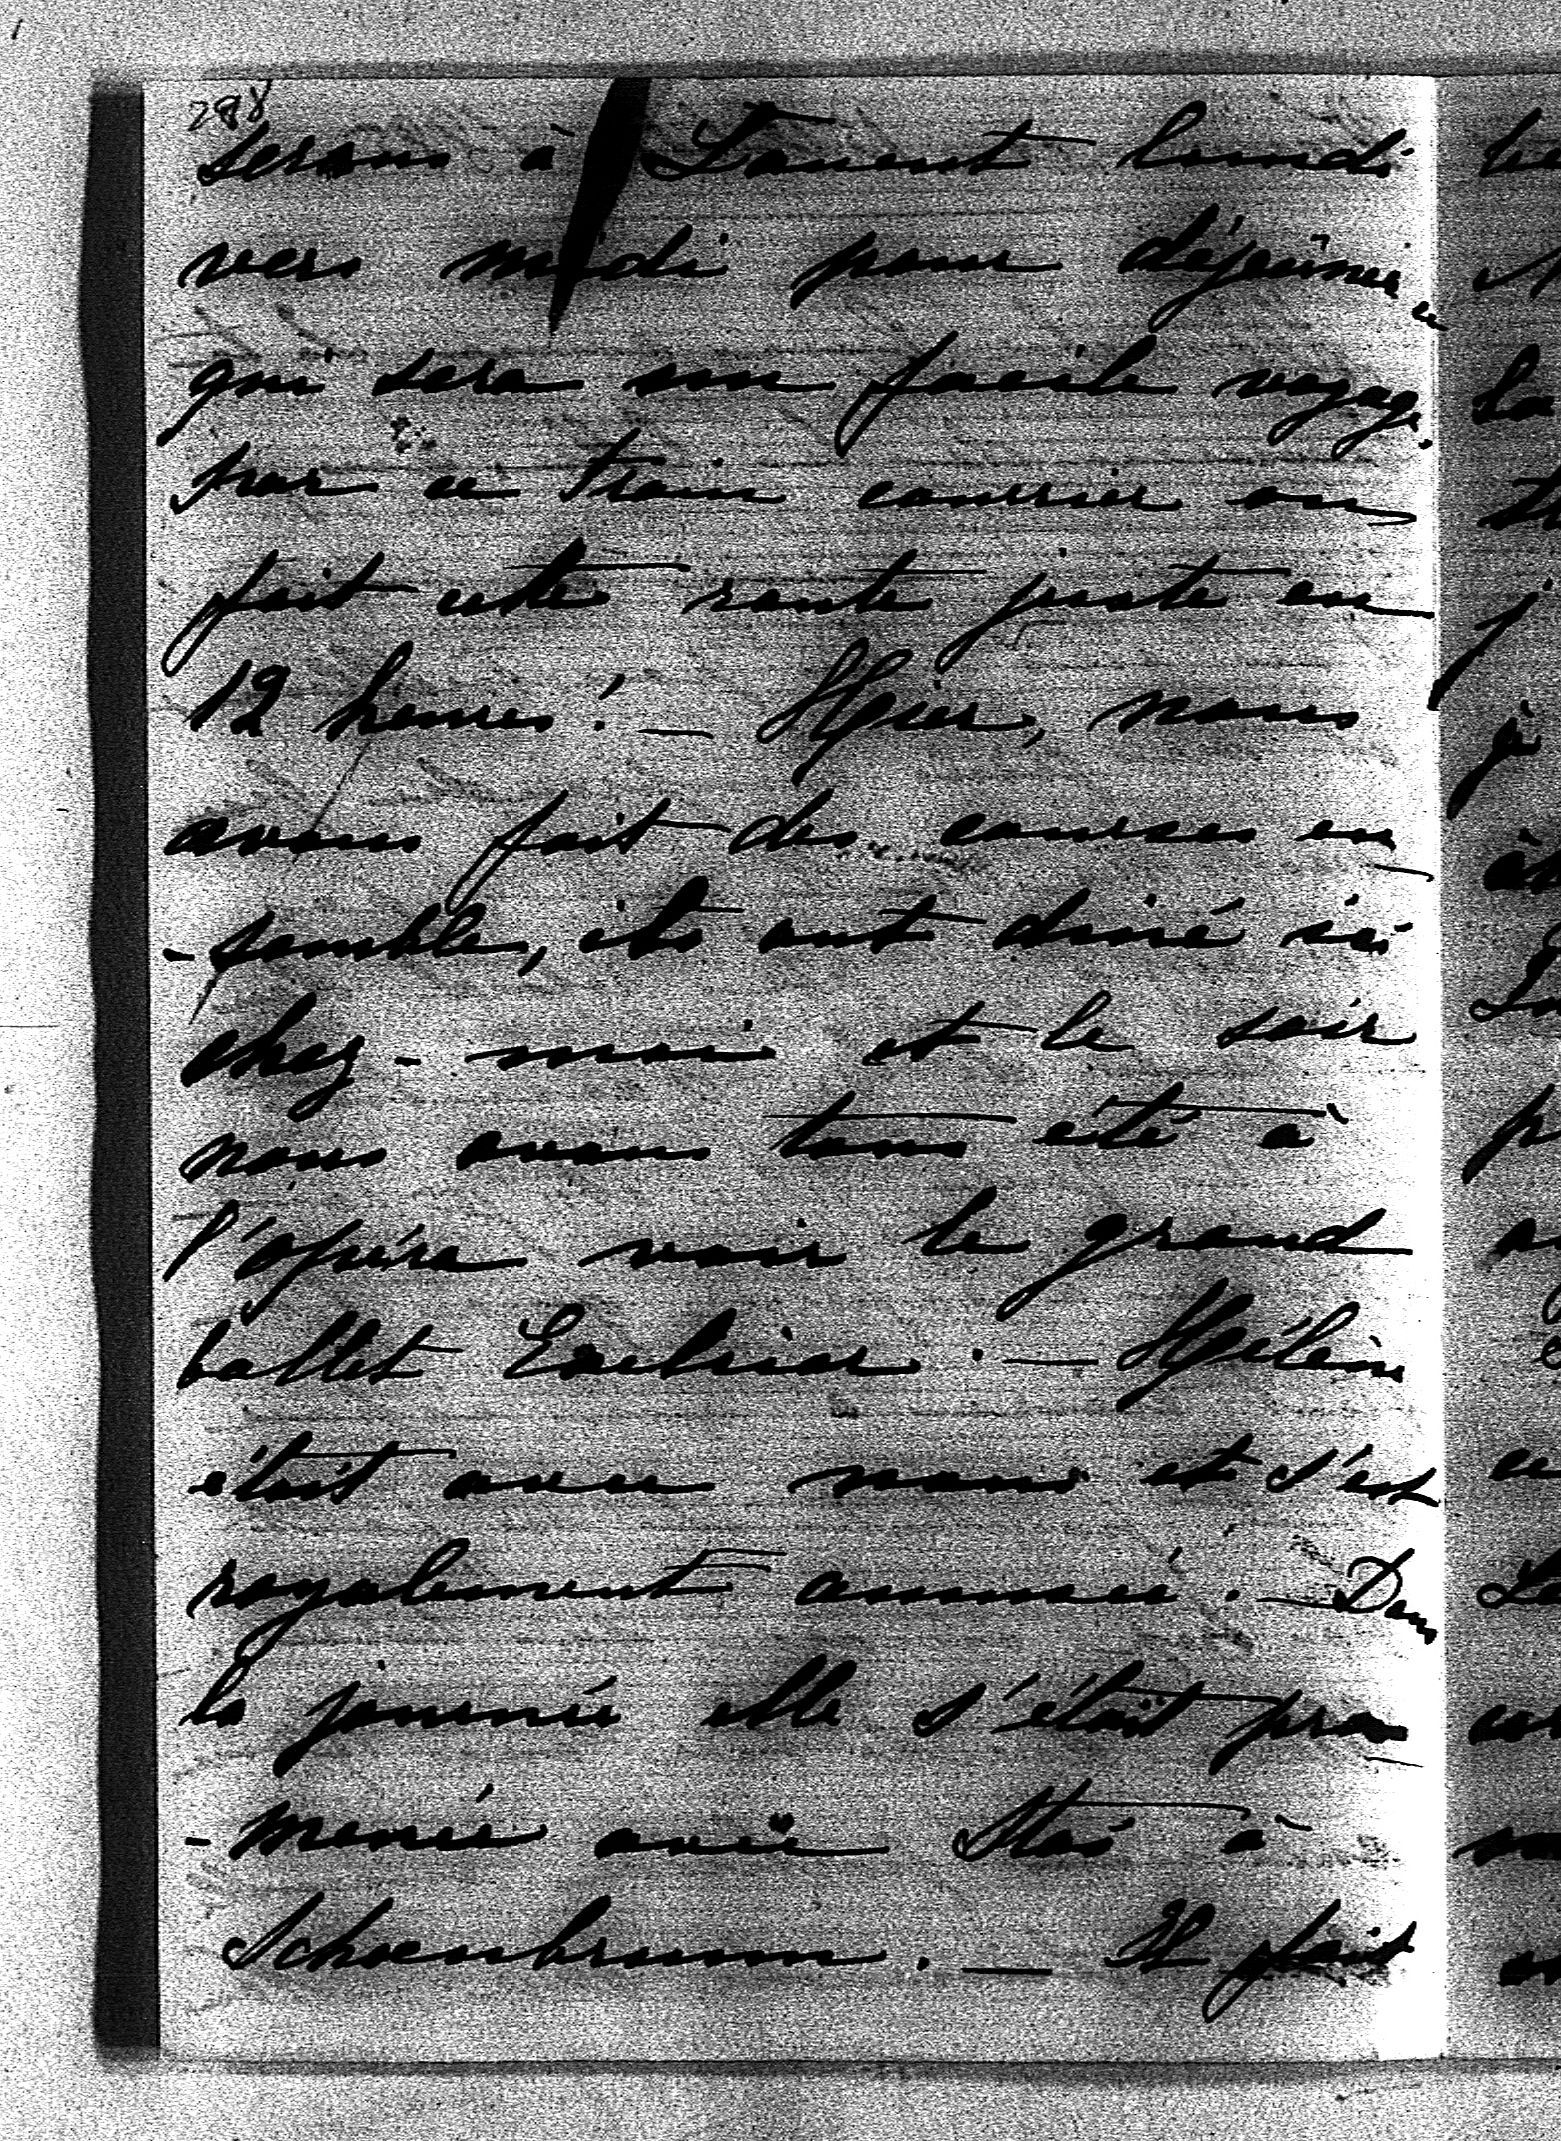 288
serons à Łancut lundi
vers midi pour déjeûner ce
qui sera un facile voyage.
par ce train courrier on
fait cette route juste en
12 heures! — Hier, nous
avons fait des courses en
-semble, ils ont diné ici
chez-moi et le soir
nous avons tous été à
l'opéra voir le grand
ballet Excelsior. — Hélène
était avec nous et s'est
royalement amusée. — Dans
la journée elle s'était pro
-menée avec Stas à
Schoenbrunn. — Il fait